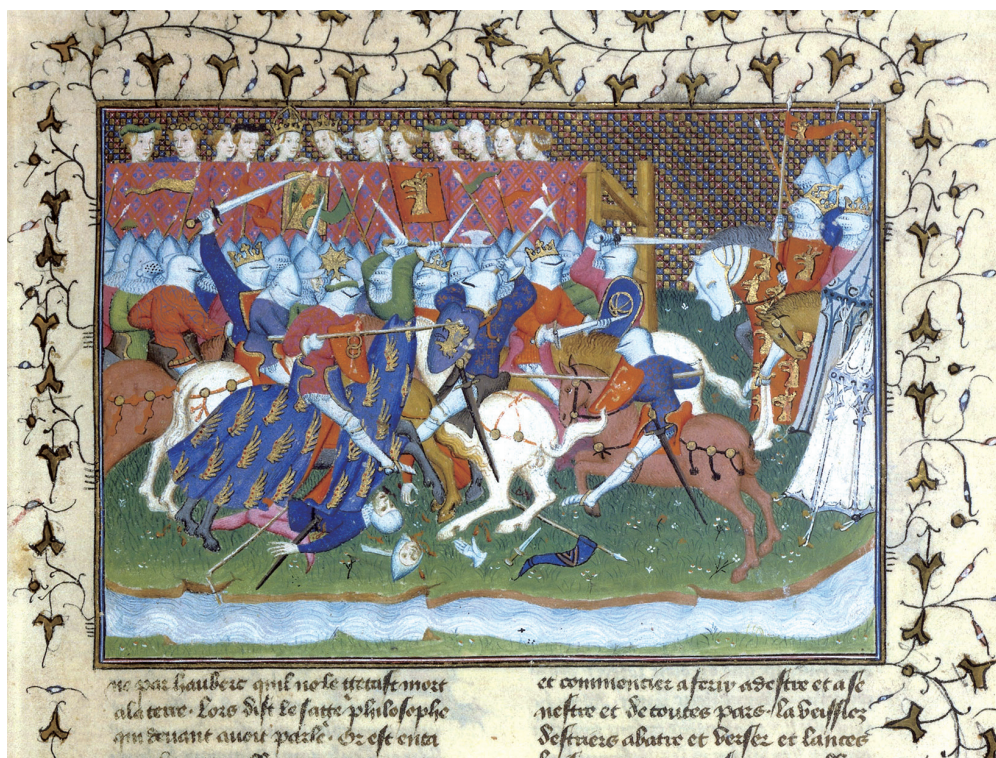 ne par haubert quil ne le gettast mort
a la terre. Lors dist le sage philosophe
qui devant avoit parle. Or est entr
et commencier a ferir a destre et a se
nestre et de toutes pars. La veissiez
destriers abatre et verser et lances